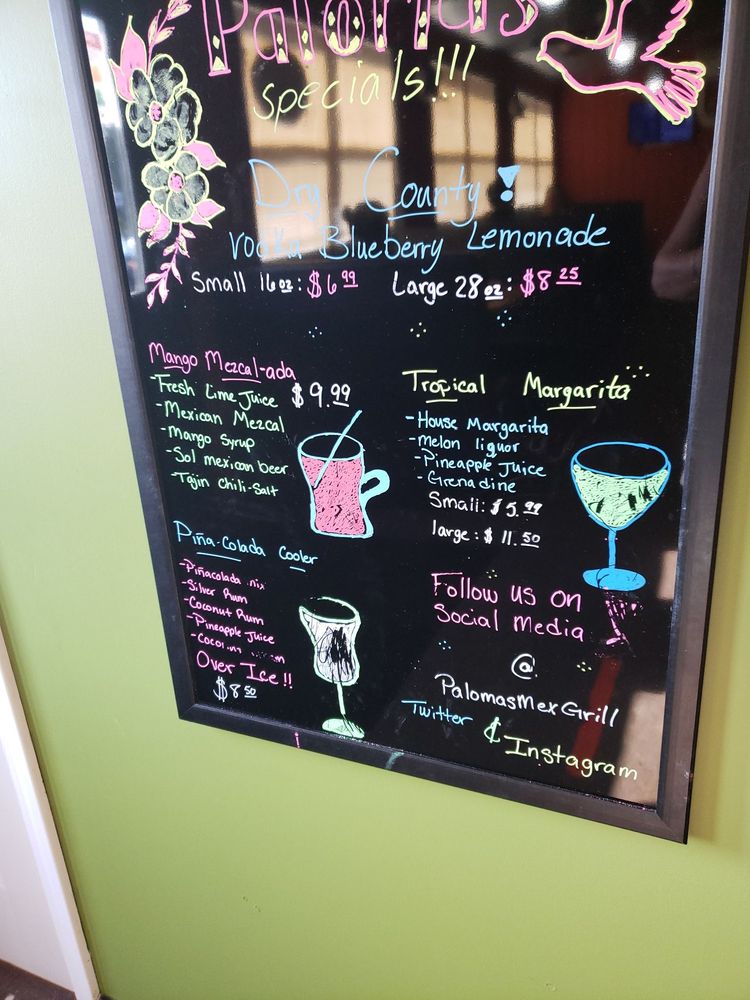 Palomas
specials!!!
Dry County!
Vodka Blueberry Lemonade
Small 16oz: $6.99 Large 28oz: $8.25
Mango Mezcal-ada
-Fresh Lime Juice $9.99
-Mexican Mezcal
-Mango Syrup
-Sol mexican beer
-Tajin chili-Salt
Tropical Margarita
-House Margarita
-melon liquor
-Pineapple Juice
-Grenadine
Small: $5.99
large: $11.50
Piña-Colada Cooler
-Piñacolada mix
-Silver Rum
-Coconut Rum
-Pineapple Juice
Over Ice!!
$8.50
Follow us on
Social Media
@
PalomasMexGrill
Twitter &
Instagram